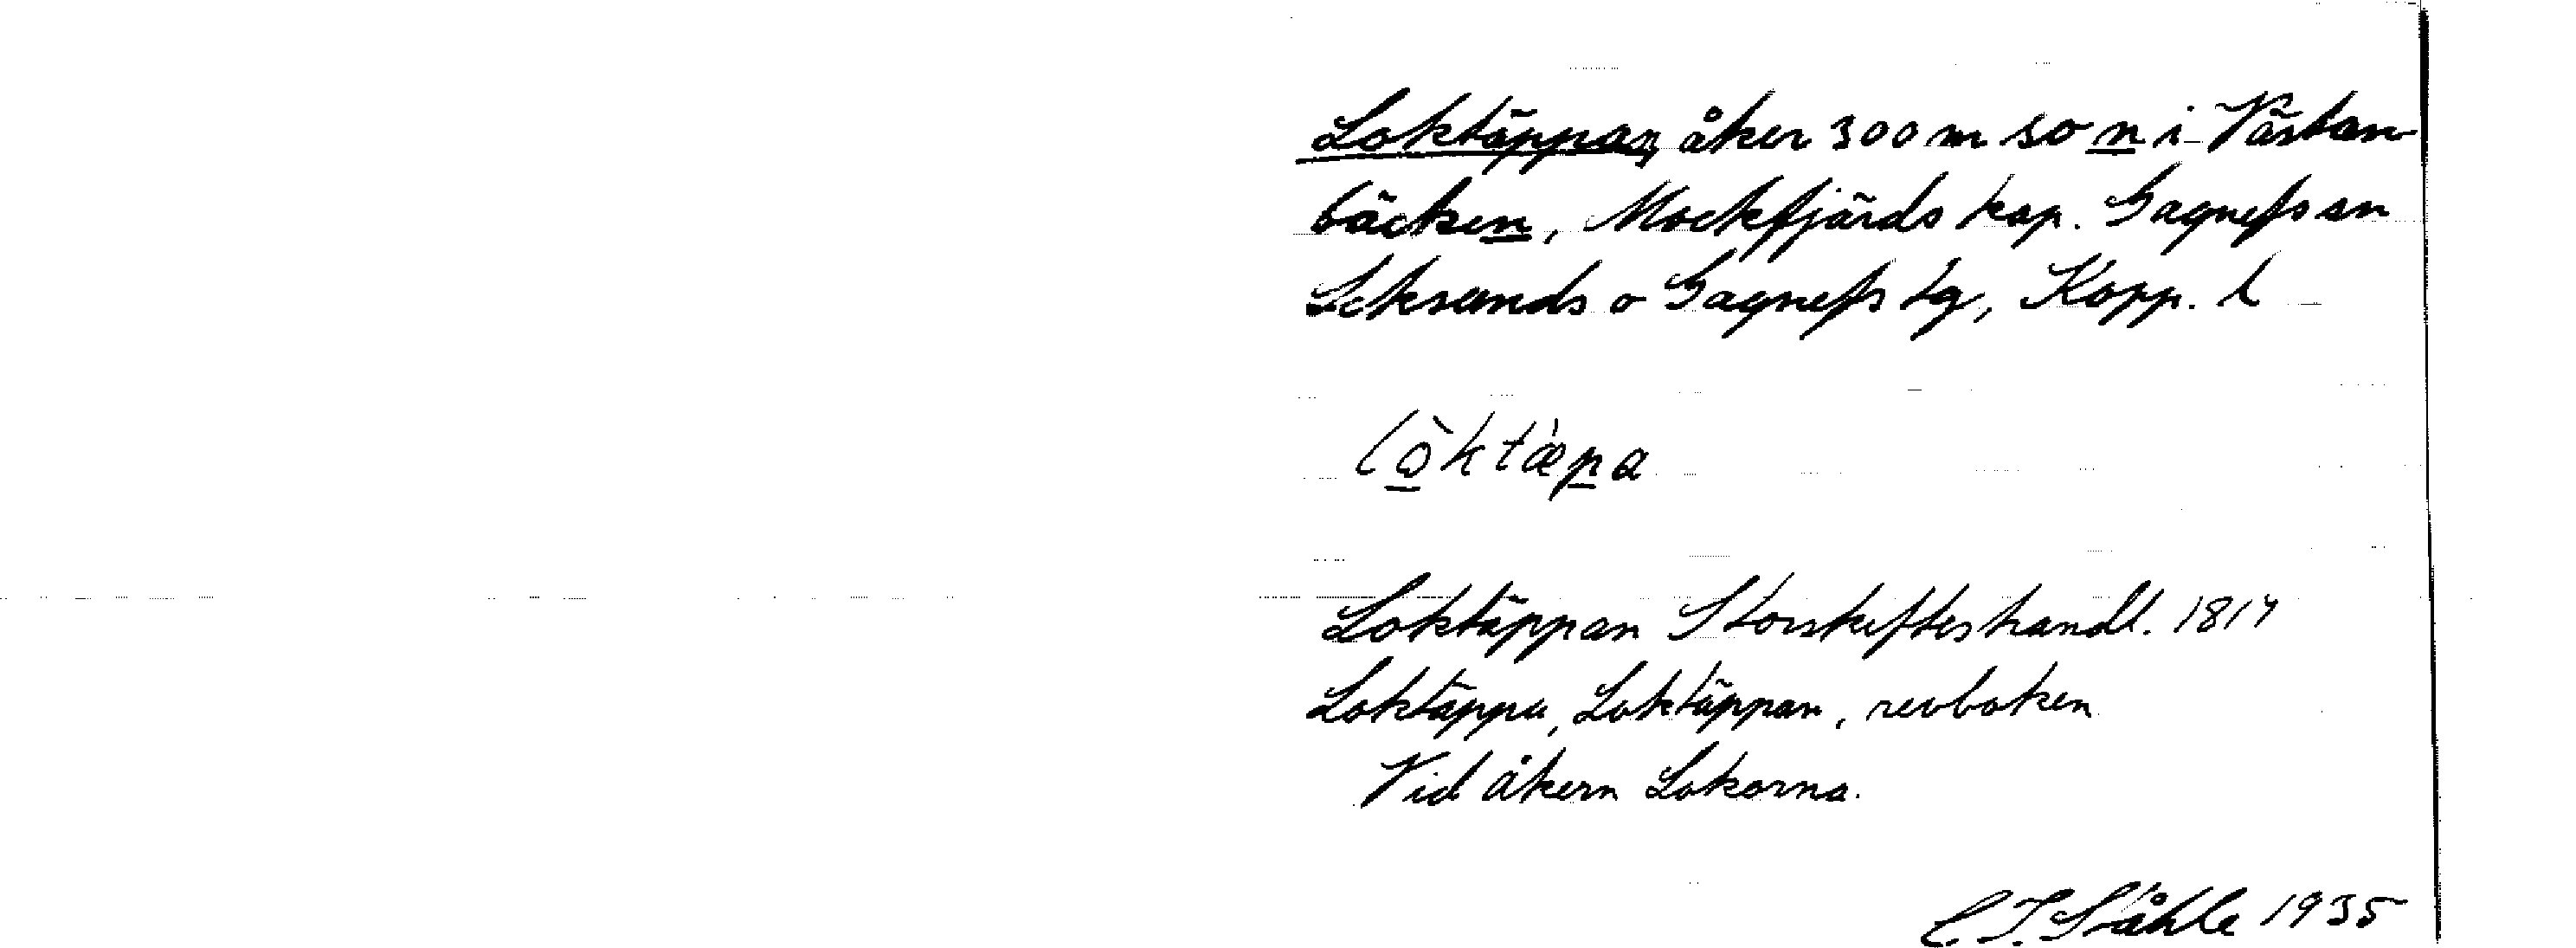 Loktäppan, åker 300 m so n i Västan
bäcken, Mockfjärds kap. Gagnefs sn
Leksands o Gagnefs tg, Kopp. l
lòktæ̀pa
Loktäppan Storskifteshandl. 1817
Loktäppa, Loktäppan, revboken
Vid åkern Lokorna.
C. I. Ståhle 1935